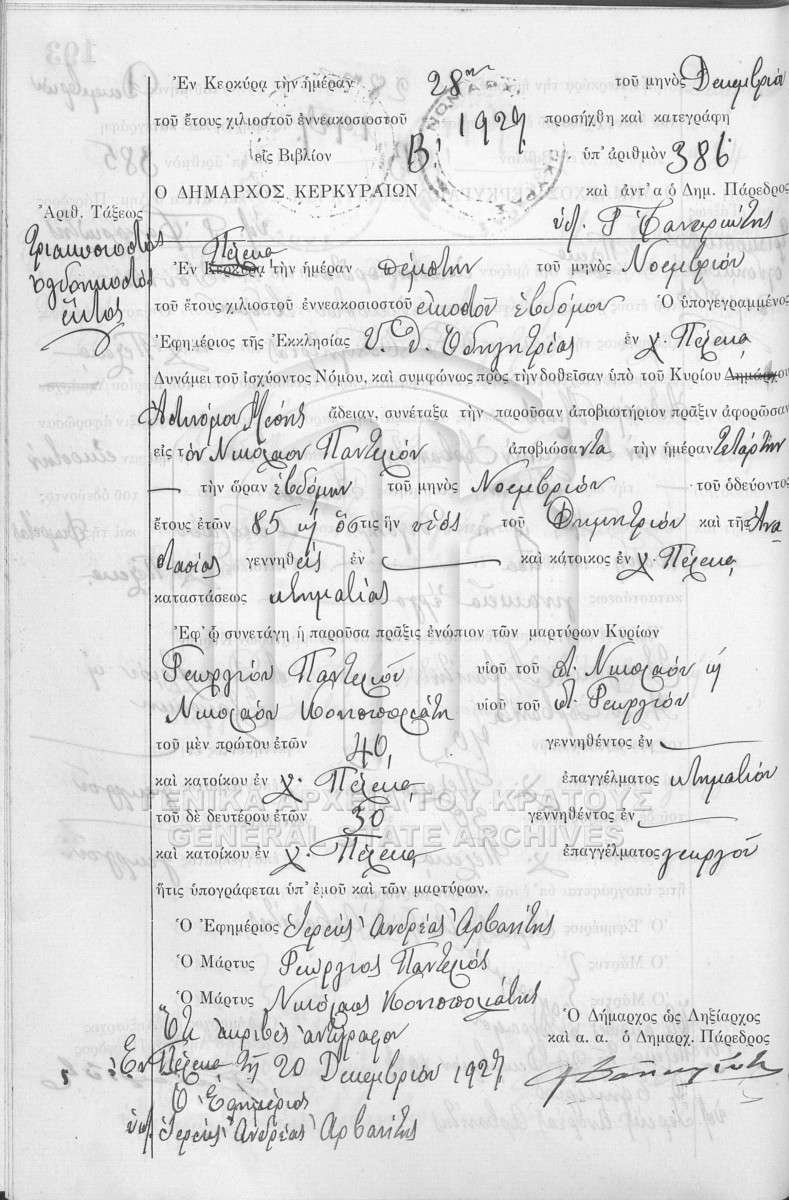 Ἐν Κερκύρᾳ τὴν ἡμέραν 28ην τοῦ μηνὸς Δεκεμβρίου
τοῦ ἔτους χιλιοστοῦ ἐννεακοσιοστοῦ 1927 προσήχθη καὶ κατεγράφη
εἰς Βιβλίον Β΄. ὑπ' ἀριθμὸν 386
Ο ΔΗΜΑΡΧΟΣ ΚΕΡΚΥΡΑΙΩΝ καὶ ἀντ' α ὁ Δημ. Πάρεδρος
Ἀριθ. Τάξεως
τριακοσιοστὸς
ὀγδοηκοστὸς
ἕκτος
Πέλεκα
Ἐν Κερκύρᾳ τὴν ἡμέραν πέμπτην τοῦ μηνὸς Νοεμβρίου
τοῦ ἔτους χιλιοστοῦ ἐννεακοσιοστοῦ εἰκοστοῦ ἑβδόμου Ὁ ὑπογεγραμμένος
Ἐφημέριος τῆς Ἐκκλησίας Ὁδηγητρίας ἐν χ. Πέλεκα
Δυνάμει τοῦ ἰσχύοντος Νόμου, καὶ συμφώνως πρὸς τὴν δοθεῖσαν ὑπὸ τοῦ Κυρίου Δημάρχου
Ἀστυνόμου Μέσης ἄδειαν, συνέταξα τὴν παροῦσαν ἀποβιωτήριον πρᾶξιν ἀφορῶσαν
εἰς τὸν Νικόλαον Παντελιὸν ἀποβιώσαντα τὴν ἡμέραν τετάρτην
— τὴν ὥραν ἑβδόμην τοῦ μηνὸς Νοεμβρίου τοῦ ὁδεύοντος
ἔτους ἐτῶν 85 ὅστις ἦν υἱὸς τοῦ Δημητρίου καὶ τῆς Ἀνα
στασίας γεννηθεὶς ἐν — καὶ κάτοικος ἐν χ. Πέλεκα
καταστάσεως κτηματίας
Ἐφ' ᾧ συνετάγη ἡ παροῦσα πρᾶξις ἐνώπιον τῶν μαρτύρων Κυρίων
Γεωργίου Παντελιοῦ υἱοῦ τοῦ Νικολάου
Νικολάου υἱοῦ τοῦ Γεωργίου
τοῦ μὲν πρώτου ἐτῶν 40 γεννηθέντος ἐν —
καὶ κατοίκου ἐν χ. Πέλεκα ἐπαγγέλματος κτηματίου
ΓΕΝΙΚΑ ΑΡΧΕΙΑ ΤΟΥ ΚΡΑΤΟΥΣ
τοῦ δὲ δευτέρου ἐτῶν 30 γεννηθέντος ἐν —
GENERAL STATE ARCHIVES
καὶ κατοίκου ἐν χ. Πέλεκα ἐπαγγέλματος γεωργοῦ
ἥτις ὑπογράφεται ὑπ' ἐμοῦ καὶ τῶν μαρτύρων.
Ὁ Ἐφημέριος Ἱερεὺς Ἀνδρέας Ἀρβανίτης
Ὁ Μάρτυς Γεώργιος Παντελιὸς
Ὁ Μάρτυς Νικόλαος
Ὅτι ἀκριβὲς ἀντίγραφον
Ὁ Δήμαρχος ὡς Ληξίαρχος
καὶ α. α. ὁ Δημαρχ. Πάρεδρος
Ἐν Πέλεκα τῇ 20 Δεκεμβρίου 1927
Ὁ Ἐφημέριος
ὑπ. Ἱερεὺς Ἀνδρέας Ἀρβανίτης